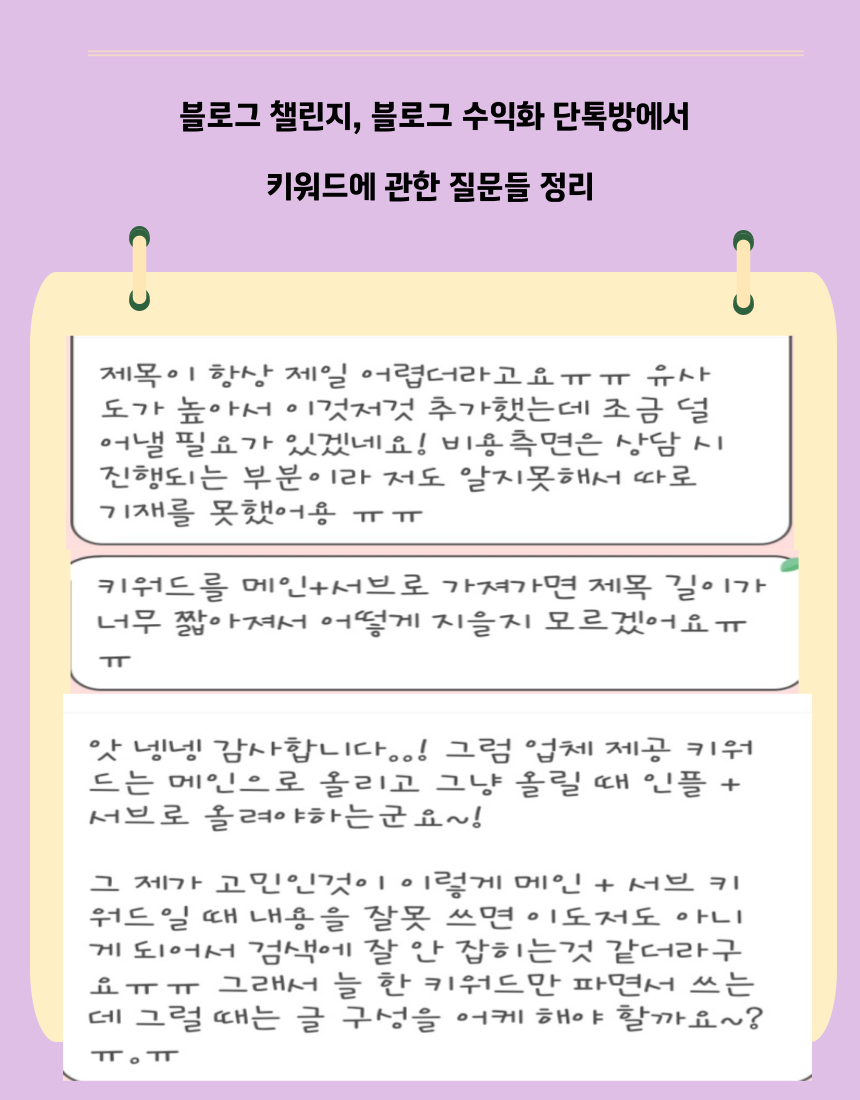 블로그 챌린지, 블로그 수익화 단톡방에서
키워드에 관한 질문들 정리
제목이 항상 제일 어렵더라고요ㅠㅠ 유사
도가 높아서 이것저것 추가했는데 조금 덜
어낼 필요가 있겠네요! 비용측면은 상담 시
진행되는 부분이라 저도 알지못해서 따로
기재를 못했어용 ㅠㅠ
키워드를 메인+서브로 가져가면 제목 길이가
너무 짧아져서 어떻게 지을지 모르겠어요ㅠ
ㅠ
앗 넹넹 감사합니다..! 그럼 업체 제공 키워
드는 메인으로 올리고 그냥 올릴 때 인플 +
서브로 올려야하는군요~!
그 제가 고민인것이 이렇게 메인 + 서브 키
워드일 때 내용을 잘못 쓰면 이도저도 아니
게 되어서 검색에 잘 안 잡히는것 같더라구
요ㅠㅠ 그래서 늘 한 키워드만 파면서 쓰는
데 그럴 때는 글 구성을 어케 해야 할까요~?
ㅠ。ㅠ